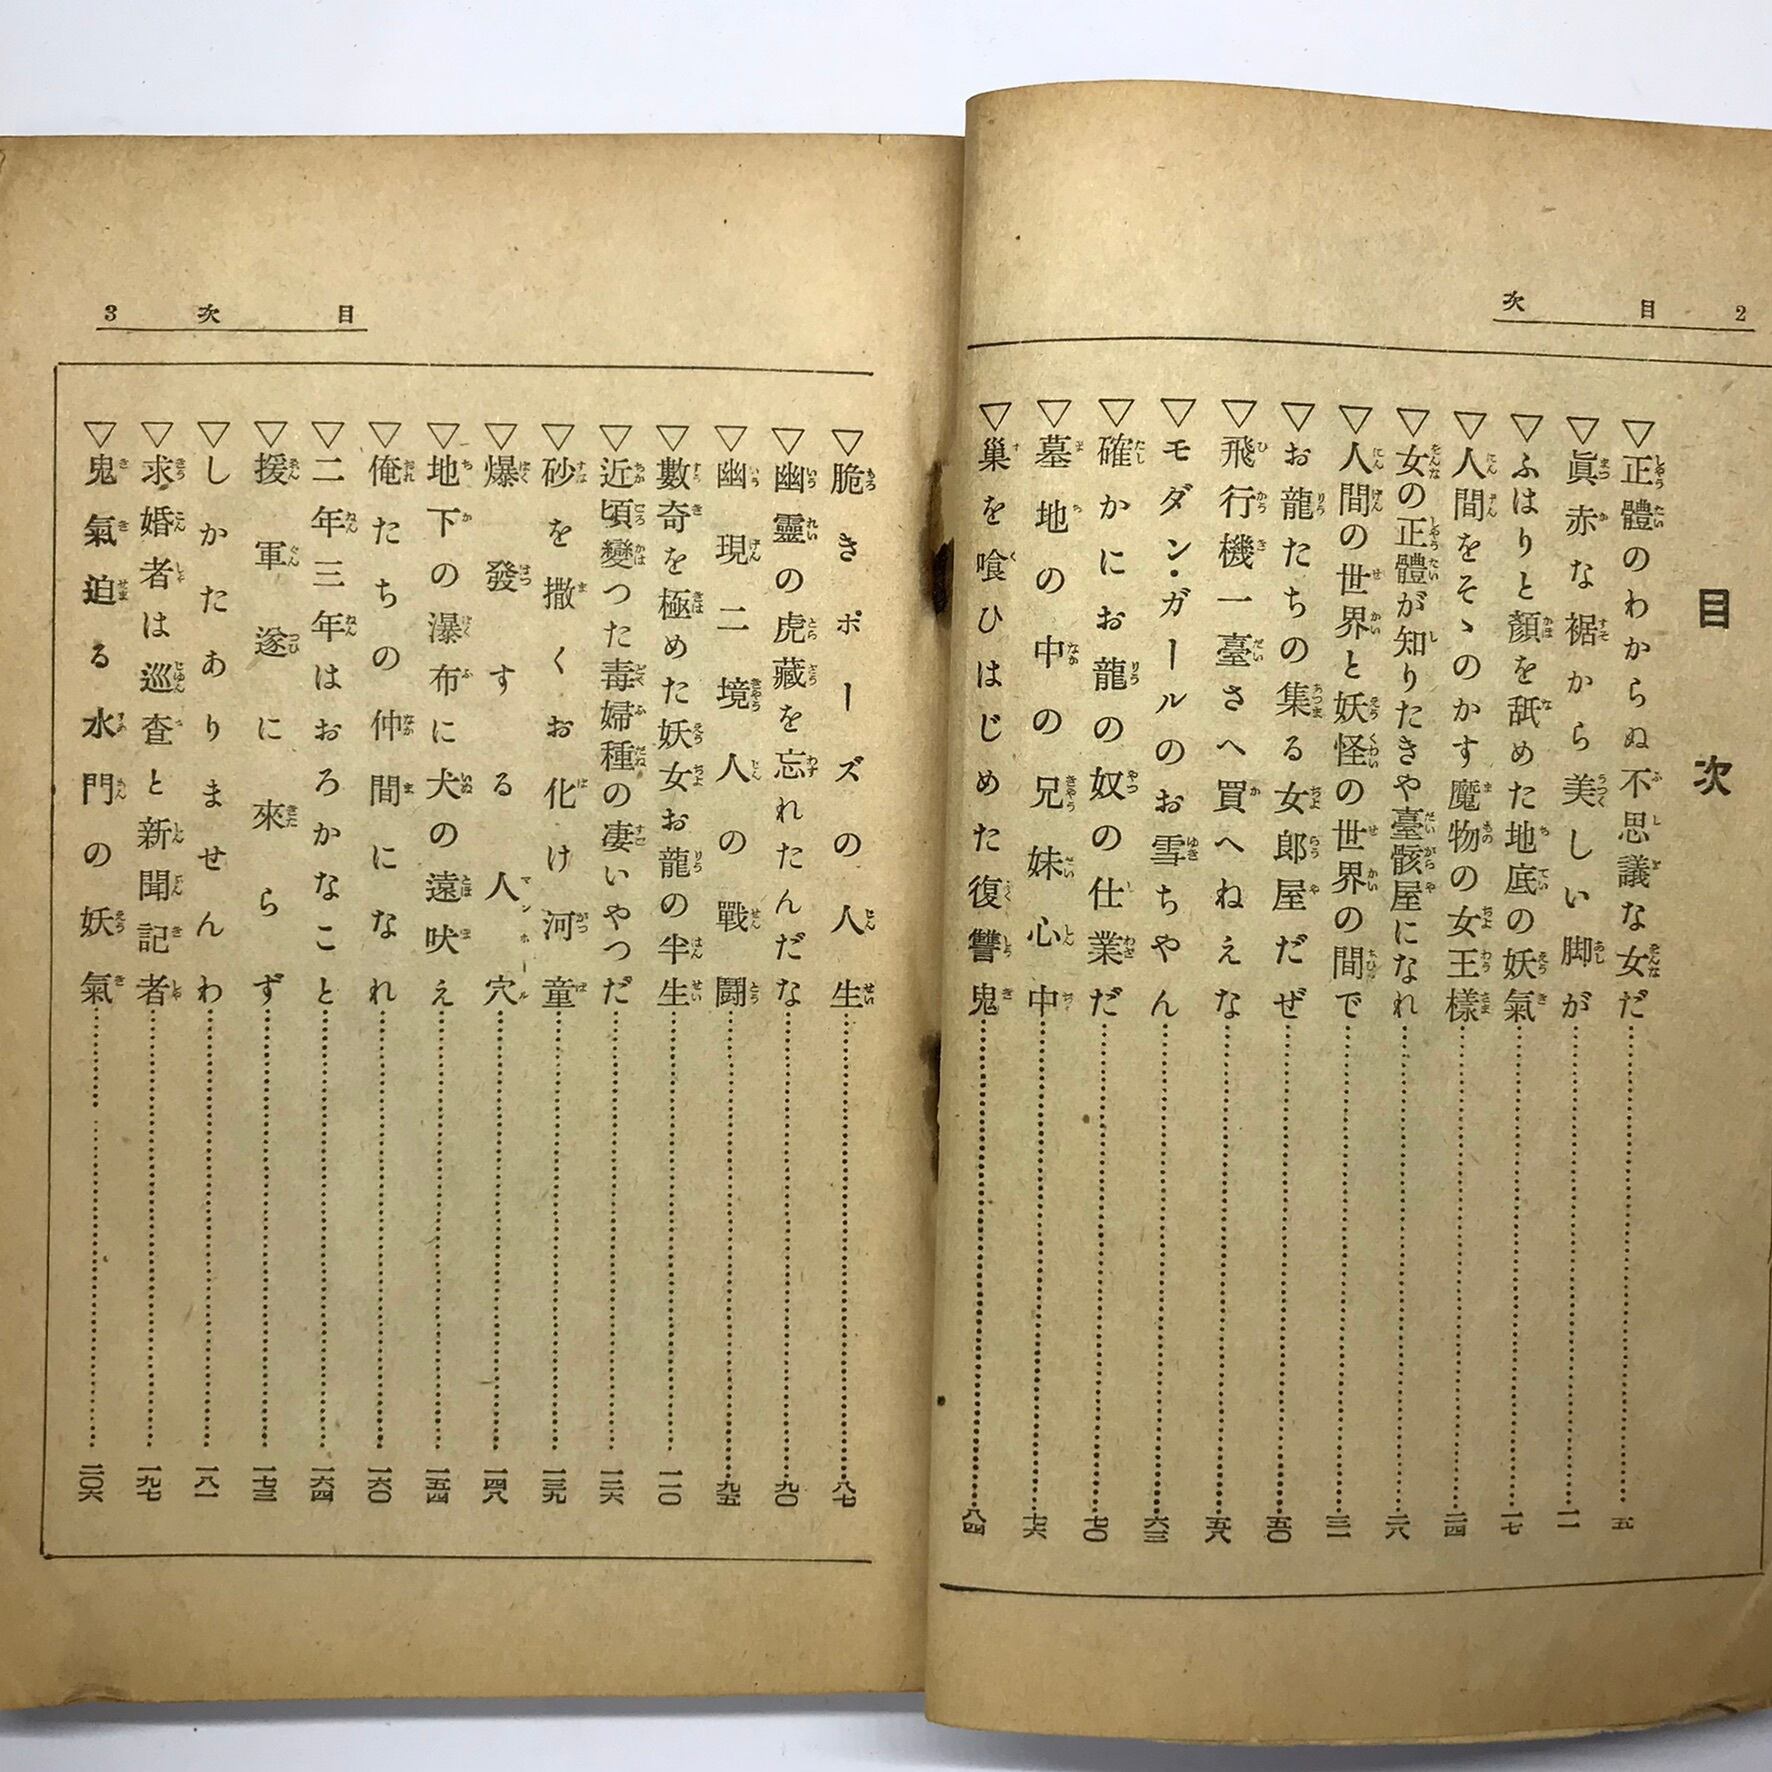 2 目次
目次
▽正體のわからぬ不思議な女だ……五
▽眞赤な裾から美しい脚が……一一
▽ふはりと顏を舐めた地底の妖氣……一七
▽人間をそゝのかす魔物の女王樣……二四
▽女の正體が知りたきや臺骸屋になれ……二八
▽人間の世界と妖怪の世界の間で……三一
▽お龍たちの集る女郎屋だぜ……五〇
▽飛行機一臺さへ買へねぇな……五八
▽モダン・ガールのお雪ちやん……六三
▽確かにお龍の奴の仕業だ……七〇
▽墓地の中の兄妹心中……七六
▽巢を喰ひはじめた復讐鬼……八四
目次 3
▽脆きポーズの人生……八七
▽幽靈の虎藏を忘れたんだな……九〇
▽幽現二境人の戰鬪……九五
▽數奇を極めた妖女お龍の半生……一一〇
▽近頃變つた毒婦種の凄いやつだ……一二六
▽砂を撒くお化け河童……一三九
▽爆發する人穴……一四八
▽地下の瀑布に犬の遠吠え……一五四
▽俺たちの仲間になれ……一六〇
▽二年三年はおろかなこと……一六四
▽援軍遂に來らず……一七三
▽しかたありませんわ……一八一
▽求婚者は巡査と新聞記者……一九七
▽鬼氣迫る水門の妖氣……二〇六